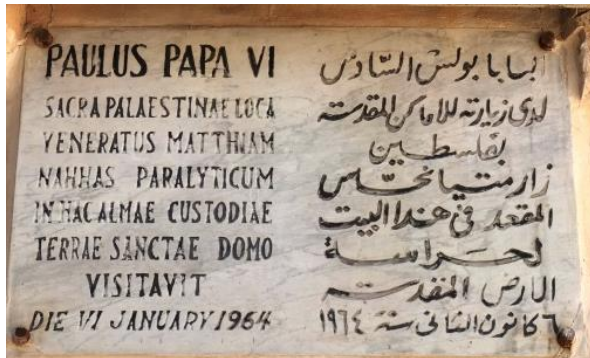 PAULUS PAPA VI
SACRA PALAESTINAE LOCA
VENERATUS MATTHIAM
NAHHAS PARALYTICUM
IN HAC ALMAE CUSTODIAE
TERRAE SANCTAE DOMO
VISITAVIT
DIE VI JANUARY 1964
البابا بولس السّادس
لدى زيارته للاماكن المقدسة
بفلسطين
زار متيا نحّاس
المقعد في هذا البيت
لحراسة
الارض المقدسة
٦ كانون الثاني سنة ١٩٦٤